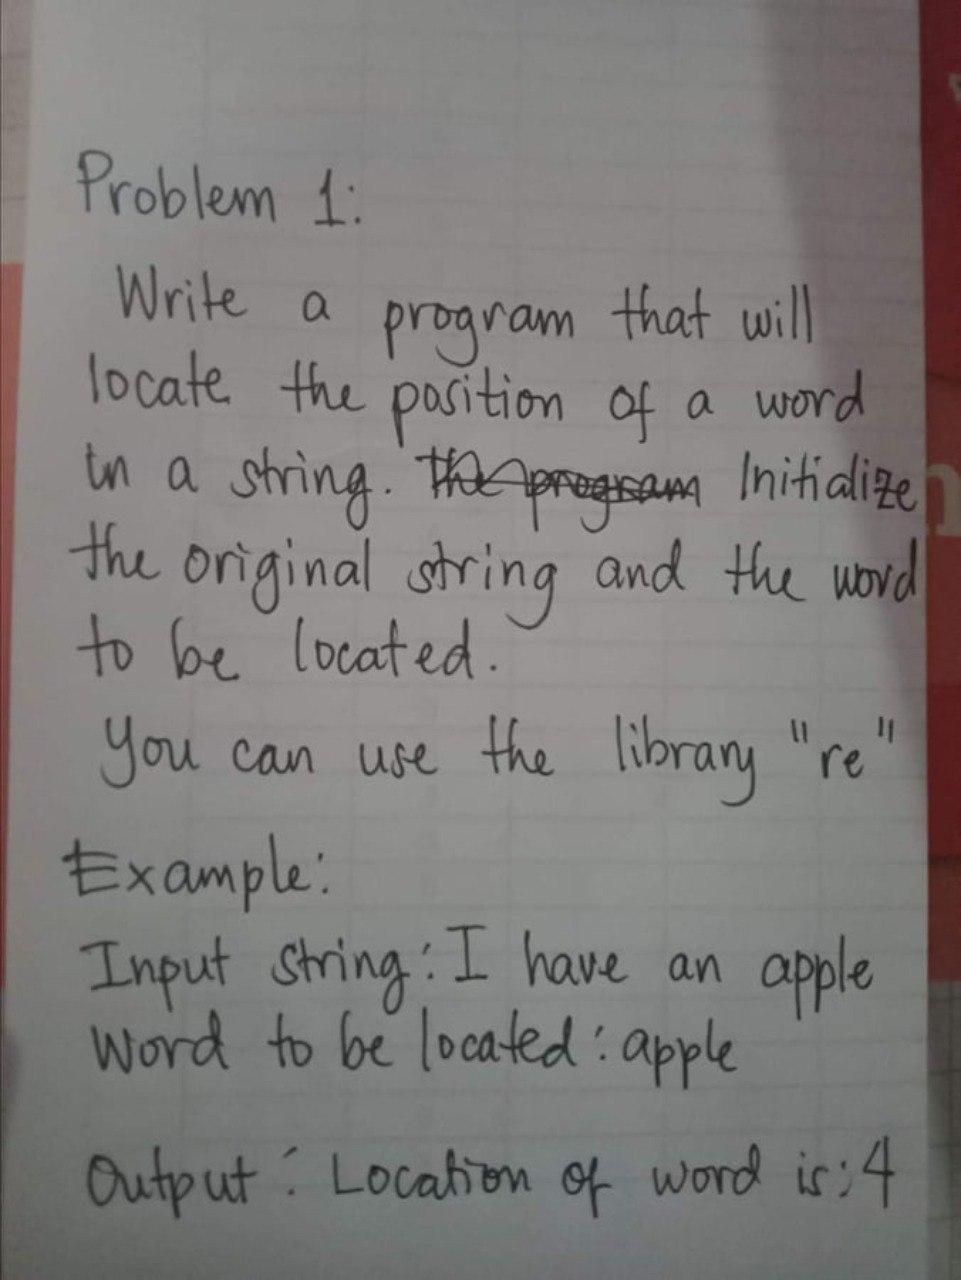 Problem 1:
Write a program that will
locate the position of a word
in a string. the program Initialize
the original string and the word
to be located.
You can use the library "re"
Example:
Input string: I have an apple
Word to be located: apple
Output: Location of word is: 4